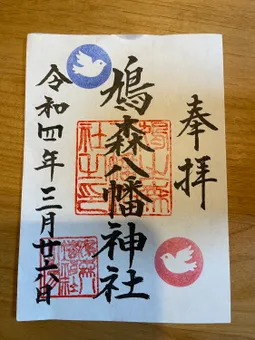 奉拝
鳩森八幡神社
令和四年三月廿六日